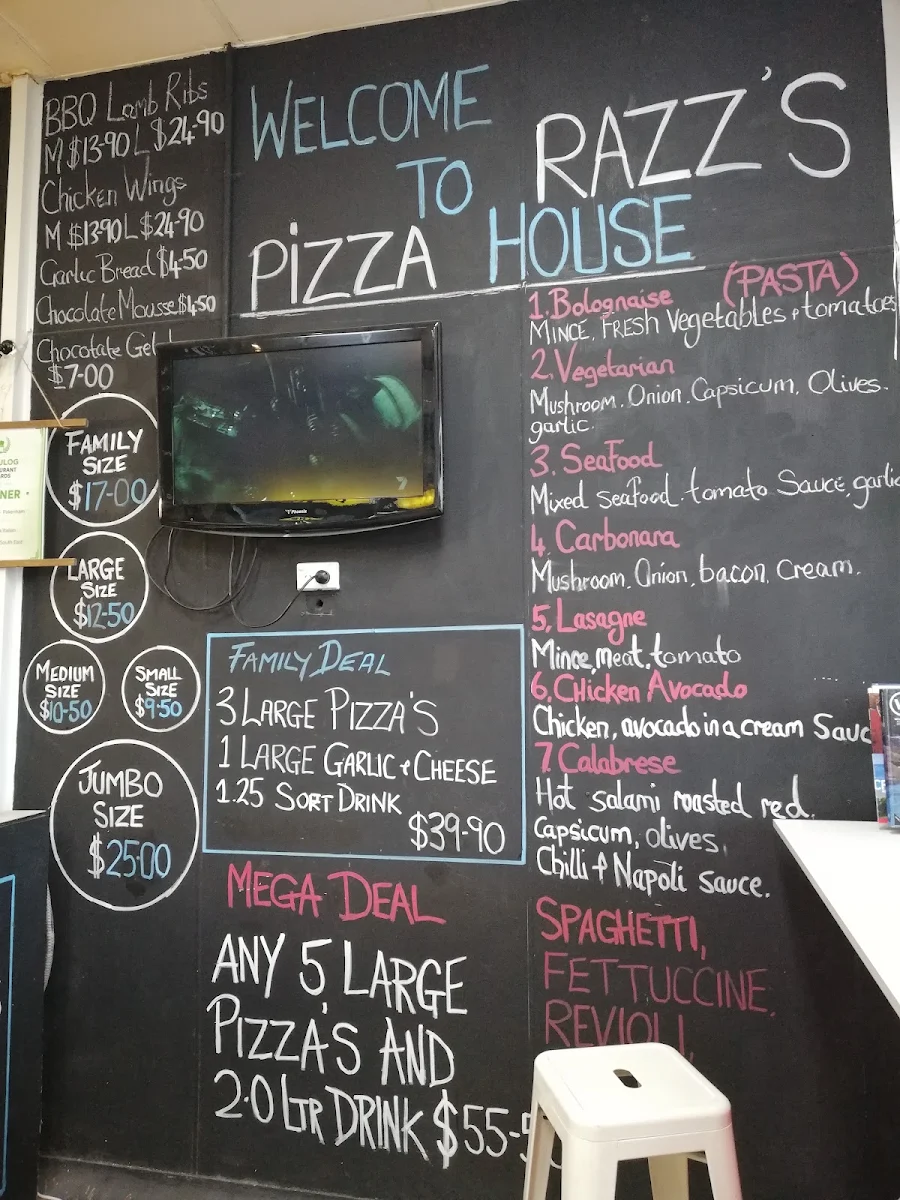 BBQ Lamb Ribs
M $13-90 L $24-90
Chicken Wings
M $13-90 L $24-90
Garlic Bread $4-50
Chocolate Mousse $4-50
Chocotate Gel
$7-00
WELCOME
TO RAZZ'S
PIZZA HOUSE
FAMILY
SIZE
$17-00
LARGE
SIZE
$12-50
MEDIUM
SIZE
$10-50
SMALL
SIZE
$9-50
JUMBO
SIZE
$25-00
FAMILY DEAL
3 LARGE PIZZA'S
1 LARGE GARLIC + CHEESE
1.25 SORT DRINK
$39-90
MEGA DEAL
ANY 5 LARGE
PIZZA'S AND
2.0 LTR DRINK $55-
(PASTA)
1. Bolognaise
MINCE, FRESH Vegetables + tomatoes
2. Vegetarian
Mushroom. Onion. Capsicum, Olives.
garlic.
3. Seafood
Mixed seafood. tomato Sauce, garlic
4. Carbonara
Mushroom. Onion, bacon, Cream.
5, Lasagne
Mince, meat, tomato
6, CHicken Avocado
Chicken, avocado in a cream Sauc
7 Calabrese
Hot salami roasted red,
Capsicum, olives,
Chilli + Napoli Sauce.
SPAGHETTI,
FETTUCCINE,
REVIOLI,
NER